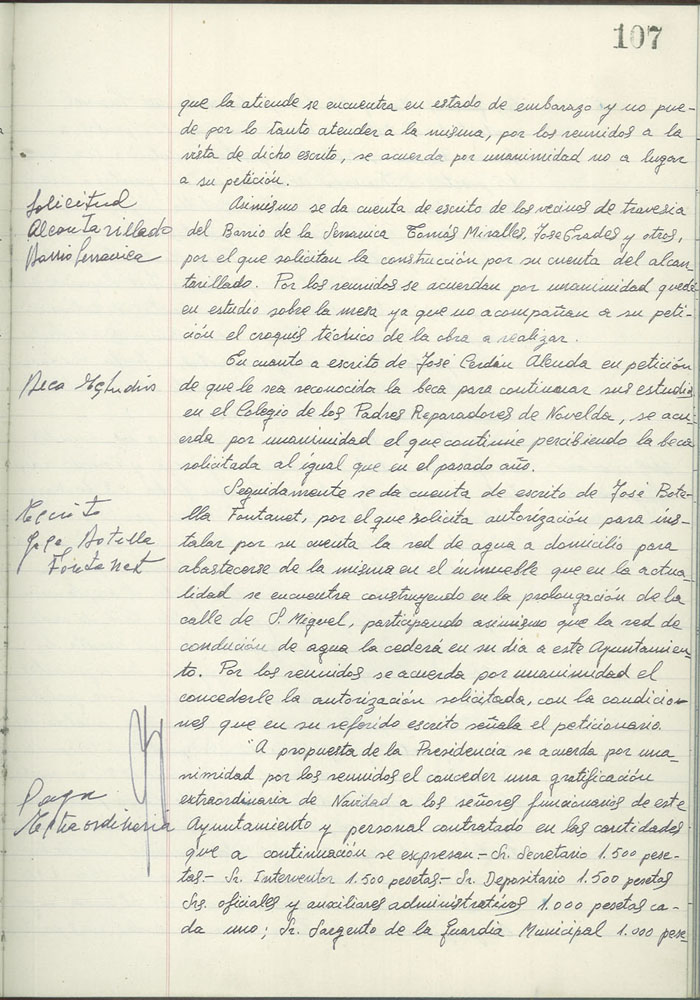 107
que la atiende se encuentra en estado de embarazo y no pue-
de por lo tanto atender a la misma, por los reunidos a la
vista de dicho escrito, se acuerda por unanimidad no a lugar
a su petición.
Solicitud
Alcantarillado
Barrio Serranica
Asimismo se da cuenta de escrito de los vecinos de travesia
del Barrio de la Serranica Tomás Miralles, Jose Prades y otros,
por el que solicitan la construcción por su cuenta del alcan-
tarillado. Por los reunidos se acuerdan por unanimidad quede
en estudio sobre la mesa ya que no acompañan a su peti-
ción el croquis técnico de la obra a realizar.
Beca Estudios
En cuanto a escrito de José Cerdán Alenda en petición
de que le sea reconocida la beca para continuar sus estudios
en el Colegio de los Padres Reparadores de Novelda, se acu-
erda por unanimidad el que continue percibiendo la beca
solicitada al igual que en el pasado año.
Escrito
Jose Botella
Fontanet
Seguidamente se da cuenta de escrito de José Bote-
lla Fontanet, por el que solicita autorización para ins-
talar por su cuenta la red de agua a domicilio para
abastecerse de la misma en el inmueble que en la actua-
lidad se encuentra construyendo en la prolongación de la
calle de S. Miguel, participando asimismo que la red de
condución de agua la cederá en su dia a este Ayuntamien-
to. Por los reunidos se acuerda por unanimidad el
concederle la autorización solicitada, con la condicio-
nes que en su referido escrito señala el peticionario.
Paga
Extraordinaria
A propuesta de la Presidencia se acuerda por una-
nimidad por los reunidos el conceder una gratificación
extraordinaria de Navidad a los señores funcionarios de este
Ayuntamiento y personal contratado en las cantidades
que a continuación se expresan.- Sr. Secretario 1.500 pese-
tas.- Sr. Interventor 1.500 pesetas.- Sr. Depositario 1.500 pesetas
Srs. oficiales y auxiliares administrativos 1.000 pesetas ca-
da uno; Sr. Sargento de la Guardia Municipal 1.000 pese-